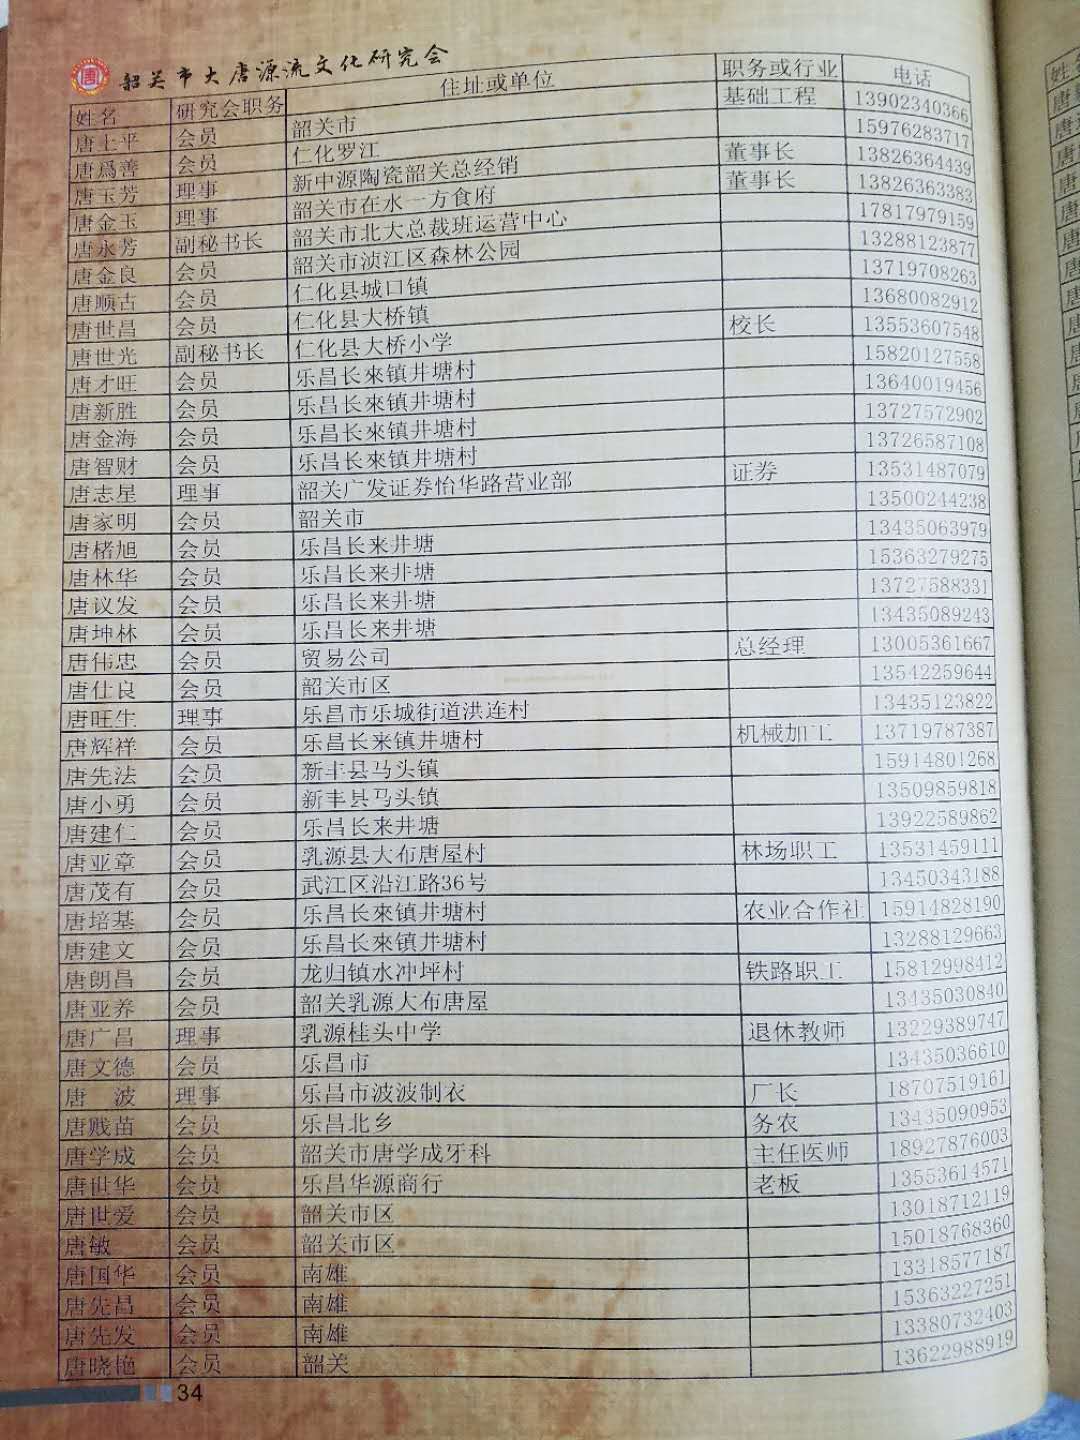 韶关市大唐源流文化研究会
姓名 研究会职务 住址或单位 职务或行业 电话
唐上平 会员 韶关市 基础工程 13902340366
唐爲善 会员 仁化罗江 15976283717
唐玉芳 理事 新中源陶瓷韶关总经销 董事长 13826364439
唐金玉 理事 韶关市在水一方食府 董事长 13826363383
唐永芳 副秘书长 韶关市北大总裁班运营中心 17817979159
唐金良 会员 韶关市浈江区森林公园 13288123877
唐顺古 会员 仁化县城口镇 13719708263
唐世昌 会员 仁化县大桥镇 13680082912
唐世光 副秘书长 仁化县大桥小学 校长 13553607548
唐才旺 会员 乐昌长來镇井塘村 15820127558
唐新胜 会员 乐昌长來镇井塘村 13640019456
唐金海 会员 乐昌长來镇井塘村 13727572902
唐智财 会员 乐昌长來镇井塘村 13726587108
唐志星 理事 韶关广发证券怡华路营业部 证券 13531487079
唐家明 会员 韶关市 13500244238
唐楮旭 会员 乐昌长来井塘 13435063979
唐林华 会员 乐昌长来井塘 15363279275
唐议发 会员 乐昌长来井塘 13727588331
唐坤林 会员 乐昌长来井塘 13435089243
唐伟忠 会员 贸易公司 总经理 13005361667
唐仕良 会员 韶关市区 13542259644
唐旺生 理事 乐昌市乐城街道洪连村 13435123822
唐辉祥 会员 乐昌长来镇井塘村 机械加工 13719787387
唐先法 会员 新丰县马头镇 15914801268
唐小勇 会员 新丰县马头镇 13509859818
唐建仁 会员 乐昌长来井塘 13922589862
唐亚章 会员 乳源县大布唐屋村 林场职工 13531459111
唐茂有 会员 武江区沿江路36号 13450343188
唐培基 会员 乐昌长來镇井塘村 农业合作社 15914828190
唐建文 会员 乐昌长來镇井塘村 13288129663
唐朗昌 会员 龙归镇水冲坪村 铁路职工 15812998412
唐亚养 会员 韶关乳源大布唐屋 13435030840
唐广昌 理事 乳源桂头中学 退休教师 13229389747
唐文德 会员 乐昌市 13435036610
唐 波 理事 乐昌市波波制衣 厂长 18707519161
唐贱苗 会员 乐昌北乡 务农 13435090953
唐学成 会员 韶关市唐学成牙科 主任医师 18927876003
唐世华 会员 乐昌华源商行 老板 13553614571
唐世爱 会员 韶关市区 13018712119
唐敏 会员 韶关市区 15018768360
唐国华 会员 南雄 13318577187
唐先昌 会员 南雄 15363227251
唐先发 会员 南雄 13380732403
唐晓艳 会员 韶关 13622988919
34